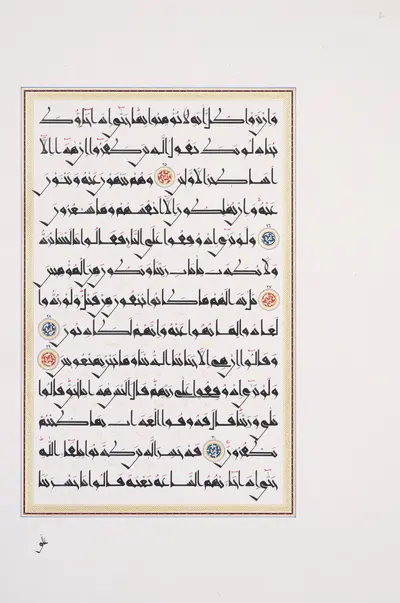 وان يروا كل اية لا يؤمنوا بها حتى اذا جاؤك
يجادلونك يقول الذين كفروا ان هذا الا
اساطير الاولين ٢٥ وهم ينهون عنه وينون
عنه وان يهلكون الا انفسهم وما يشعرون
٢٦ ولو ترى اذ وقفوا على النار فقالوا يليتنا نرد
ولا نكذب بايات ربنا ونكون من المؤمنين
٢٧ بل بدا لهم ما كانوا يخفون من قبل ولو ردوا
لعادوا لما نهوا عنه وانهم لكاذبون ٢٨
وقالوا ان هي الا حياتنا الدنيا وما نحن بمبعوثين ٢٩
ولو ترى اذ وقفوا على ربهم قال اليس هذا بالحق قالوا
بلى وربنا قال فذوقوا العذاب بما كنتم
تكفرون ٣٠ قد خسر الذين كذبوا بلقاء الله
حتى اذا جاءتهم الساعة بغتة قالوا يا حسرتنا
على